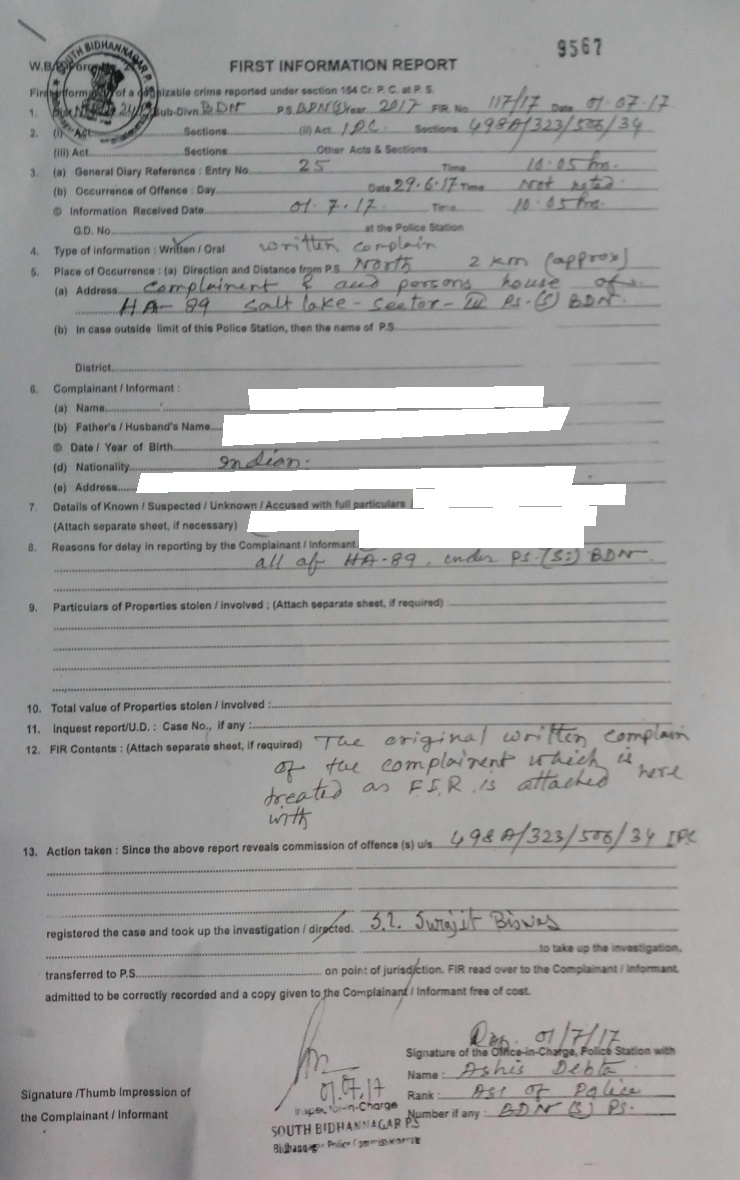 9567
SOUTH BIDHANNAGAR P.
W.B.
FIRST INFORMATION REPORT
First Inform of a cognizable crime reported under section 154 Cr. P. C. at P. S.
1. Sub-Divn. BDN P.S. BDN(S) Year 2017 FIR. No. 117/17 Date 01.07.17
2. (i) Act Sections (ii) Act. IPC. Sections 498A/323/506/34
(iii) Act. Sections Other Acts & Sections
3. (a) General Diary Reference : Entry No. 25 Time 10.05 hrs.
(b) Occurrence of Offence : Day Date 29.6.17 Time Not noted
© Information Received Date 01.7.17. Time 10.05 hrs.
G.D. No. at the Police Station
4. Type of information : Written / Oral written complain
5. Place of Occurrence : (a) Direction and Distance from P.S. North 2 km (approx)
(a) Address Complainent & persons house of
HA-89 Salt lake - Sector - III PS.(S) BDN.
(b) In case outside limit of this Police Station, then the name of P.S.
District
6. Complainant / Informant :
(a) Name
(b) Father's / Husband's Name
© Date / Year of Birth
(d) Nationality Indian.
(e) Address
7. Details of Known / Suspected / Unknown / Accused with full particulars
(Attach separate sheet, if necessary)
8. Reasons for delay in reporting by the Complainant / Informant
all of HA-89, under PS.(S) BDN.
9. Particulars of Properties stolen / involved ; (Attach separate sheet, if required)
10. Total value of Properties stolen / involved :
11. Inquest report/U.D. : Case No., if any :
12. FIR Contents : (Attach separate sheet, if required) The original written complain
of the complainent which is here
treated as F.I.R is attached
with
13. Action taken : Since the above report reveals commission of offence (s) u/s. 498A/323/506/34 IPC
registered the case and took up the investigation / directed. S.I. Surajit Biswas
to take up the investigation,
transferred to P.S. on point of jurisdiction. FIR read over to the Complainant / Informant.
admitted to be correctly recorded and a copy given to the Complainant / Informant free of cost.
01/7/17
Signature of the Office-in-Charge, Police Station with
Name : Ashis Debta
01.07.17
Rank : ASI of Police
Signature /Thumb Impression of
the Complainant / Informant
Inspector-in-Charge
Number if any : BDN (S) PS.
SOUTH BIDHANNAGAR P.S
Bidhannagar Police Commissionerate